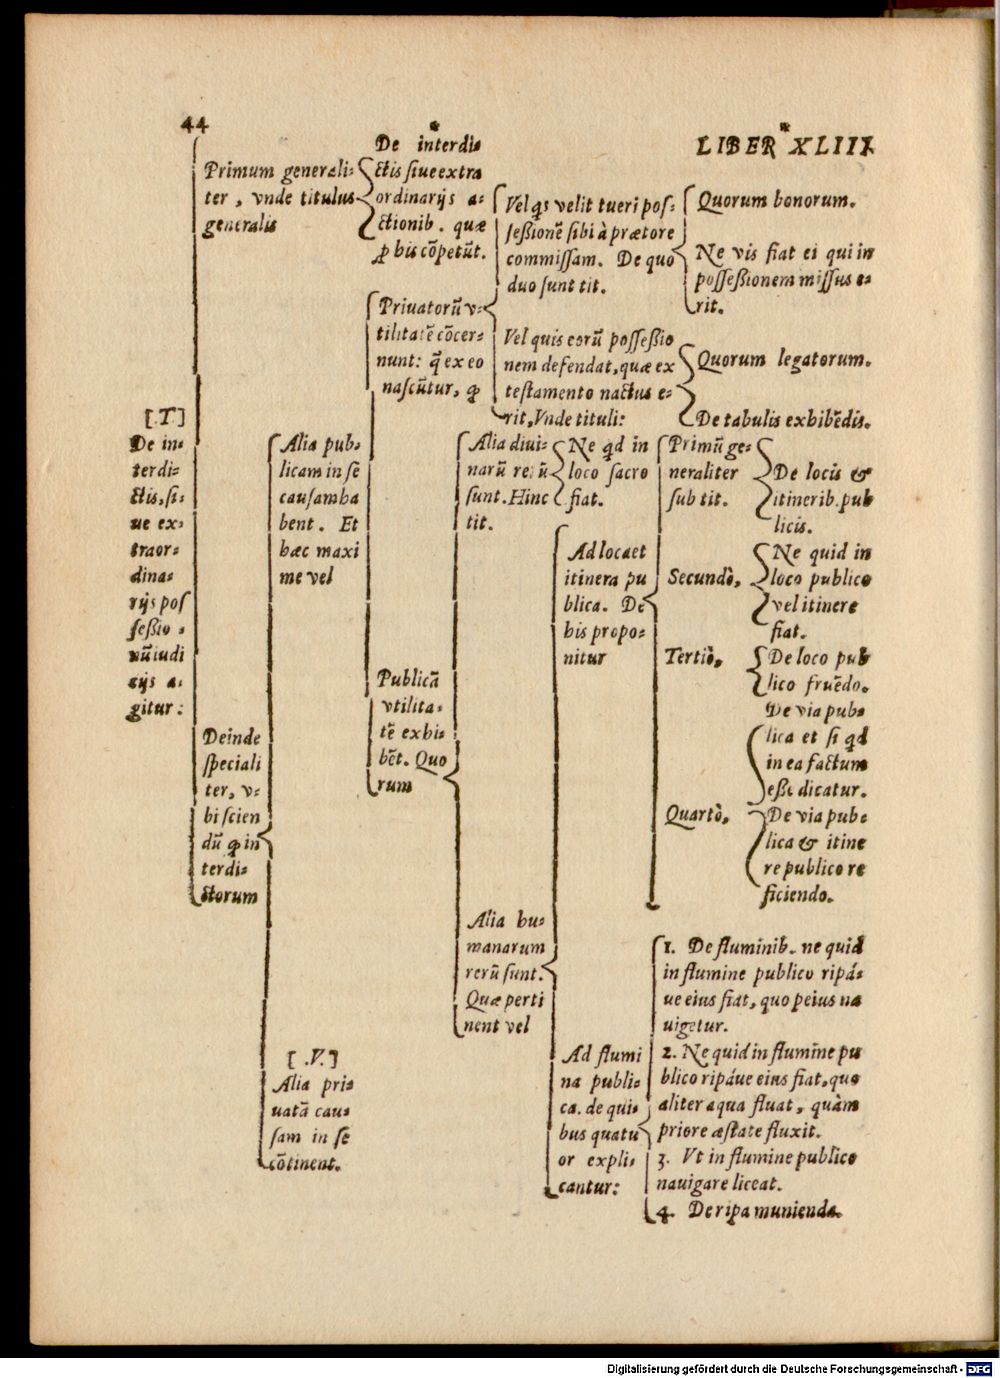 44
LIBER XLIII
[.T.]
De in-
terdi-
ctis, si-
ue ex-
traor-
dina-
rijs pos
seßio-
nũ iudi
cijs a-
gitur:
Primum generali-
ter, vnde titulus
generalis
De interdi-
ctis siue extra
ordinarijs a-
ctionib. quæ
ꝓ his cõpetũt.
Deinde
speciali
ter, v-
bi scien
dũ ꝙ in
terdi-
ctorum
Alia pub-
licam in se
causam ha
bent. Et
hæc maxi
me vel
Priuatorũ v-
tilitatẽ cõcer-
nunt: q̃ ex eo
nascũtur, ꝙ
Vel q̃s velit tueri pos-
seßionẽ sibi à prætore
commissam. De quo
duo sunt tit.
Quorum bonorum.
Ne vis fiat ei qui in
possessionem missus e-
rit.
Vel quis eorũ possessio
nem defendat, quæ ex
testamento nactus e-
rit, Vnde tituli:
Quorum legatorum.
De tabulis exhibẽdis.
Publicã
vtilita-
tẽ exhi-
bẽt. Quo
rum
Alia diui-
narũ rerũ
sunt. Hinc
tit.
Ne qd in
loco sacro
fiat.
Alia hu-
manarum
rerũ sunt.
Quæ perti
nent vel
Ad loca et
itinera pu
blica. De
his propo-
nitur
Primũ ge-
neraliter
sub tit.
De locis &
itinerib. pub
licis.
Secundò,
Ne quid in
loco publico
vel itinere
fiat.
Tertiò,
De loco pub
lico fruẽdo.
Quartò,
De via pub-
lica et si qd
in ea factum
esse dicatur.
De via pub-
lica & itine
re publico re
ficiendo.
Ad flumi
na publi-
ca. de qui-
bus quatu
or expli-
cantur:
1. De fluminib. ne quid
in flumine publico ripá-
ue eius fiat, quo peius na
uigetur.
2. Ne quid in flumine pu
blico ripáue eius fiat, quo
aliter aqua fluat, quàm
priore æstate fluxit.
3. Vt in flumine publico
nauigare liceat.
4. De ripa munienda.
[.V.]
Alia pri-
uatã cau-
sam in se
cõtinent.
Digitalisierung gefördert durch die Deutsche Forschungsgemeinschaft - DFG